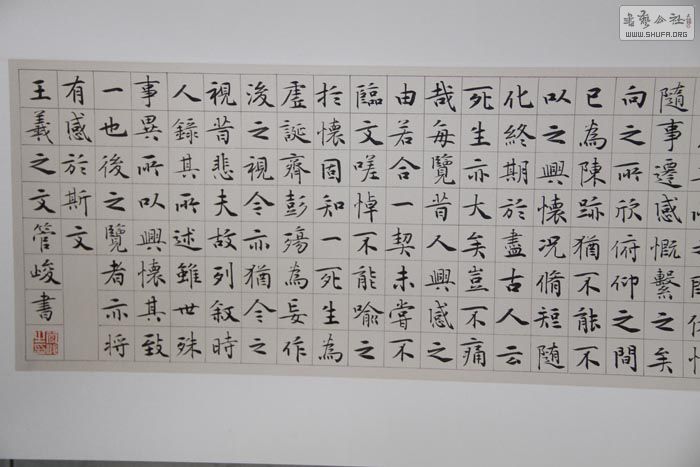 隨事遷感慨繫之矣
向之所欣俯仰之間
已為陳跡猶不能不
以之興懷況脩短随
化終期於盡古人云
死生亦大矣豈不痛
哉每覽昔人興感之
由若合一契未嘗不
臨文嗟悼不能喻之
於懷固知一死生為
虛誕齊彭殤為妄作
後之視今亦猶今之
視昔悲夫故列叙時
人錄其所述雖世殊
事異所以興懷其致
一也後之覽者亦將
有感於斯文
王羲之文管峻書
书艺公社
WWW.SHUFA.ORG